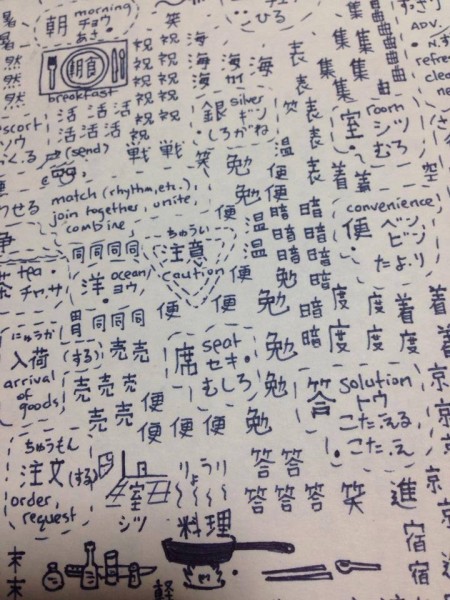 朝 morning
チョウ
あさ
朝食
breakfast
暑
暑
然
然
然
祝 祝
祝 祝
祝 祝
祝 祝
笑
海
海 海 海
海
表
表
表
表
集 集
集 集
集 集
曲
曲
曲
ひる
活 活 活
活 活 活
戦 戦
笑
銀 silver
ギン
しろがね
笑
室 room
シツ
むろ
ADV.
(send)
勉
勉 便
便
温
温
温
着 着
空
match (rhythm, etc.),
join together, unite,
combine
convenience
便 ベン
ビン
たより
同 同 同 同
洋 ocean
ヨウ
ちゅうい
注意
caution
tea
チャ、サ
暗 暗
暗 暗
暗 暗
暗 暗
暗
暗
便
便 便
勉
勉
勉
勉
度 度
度 度 度
着
着
着
着
にゅうか
入荷
(する)
arrival
of
goods
同 同 同
売 売
売 売 売
売 売
便
便 便 便
席 seat
セキ
むしろ
答 solution
トウ
こたえる
こたえ
京
京
京
京
京
ちゅうもん
注文 (する)
order,
request
室
シツ
りょうり
料理
答 答
答 答 答
笑
進
進
宿
宿
末
末
軽